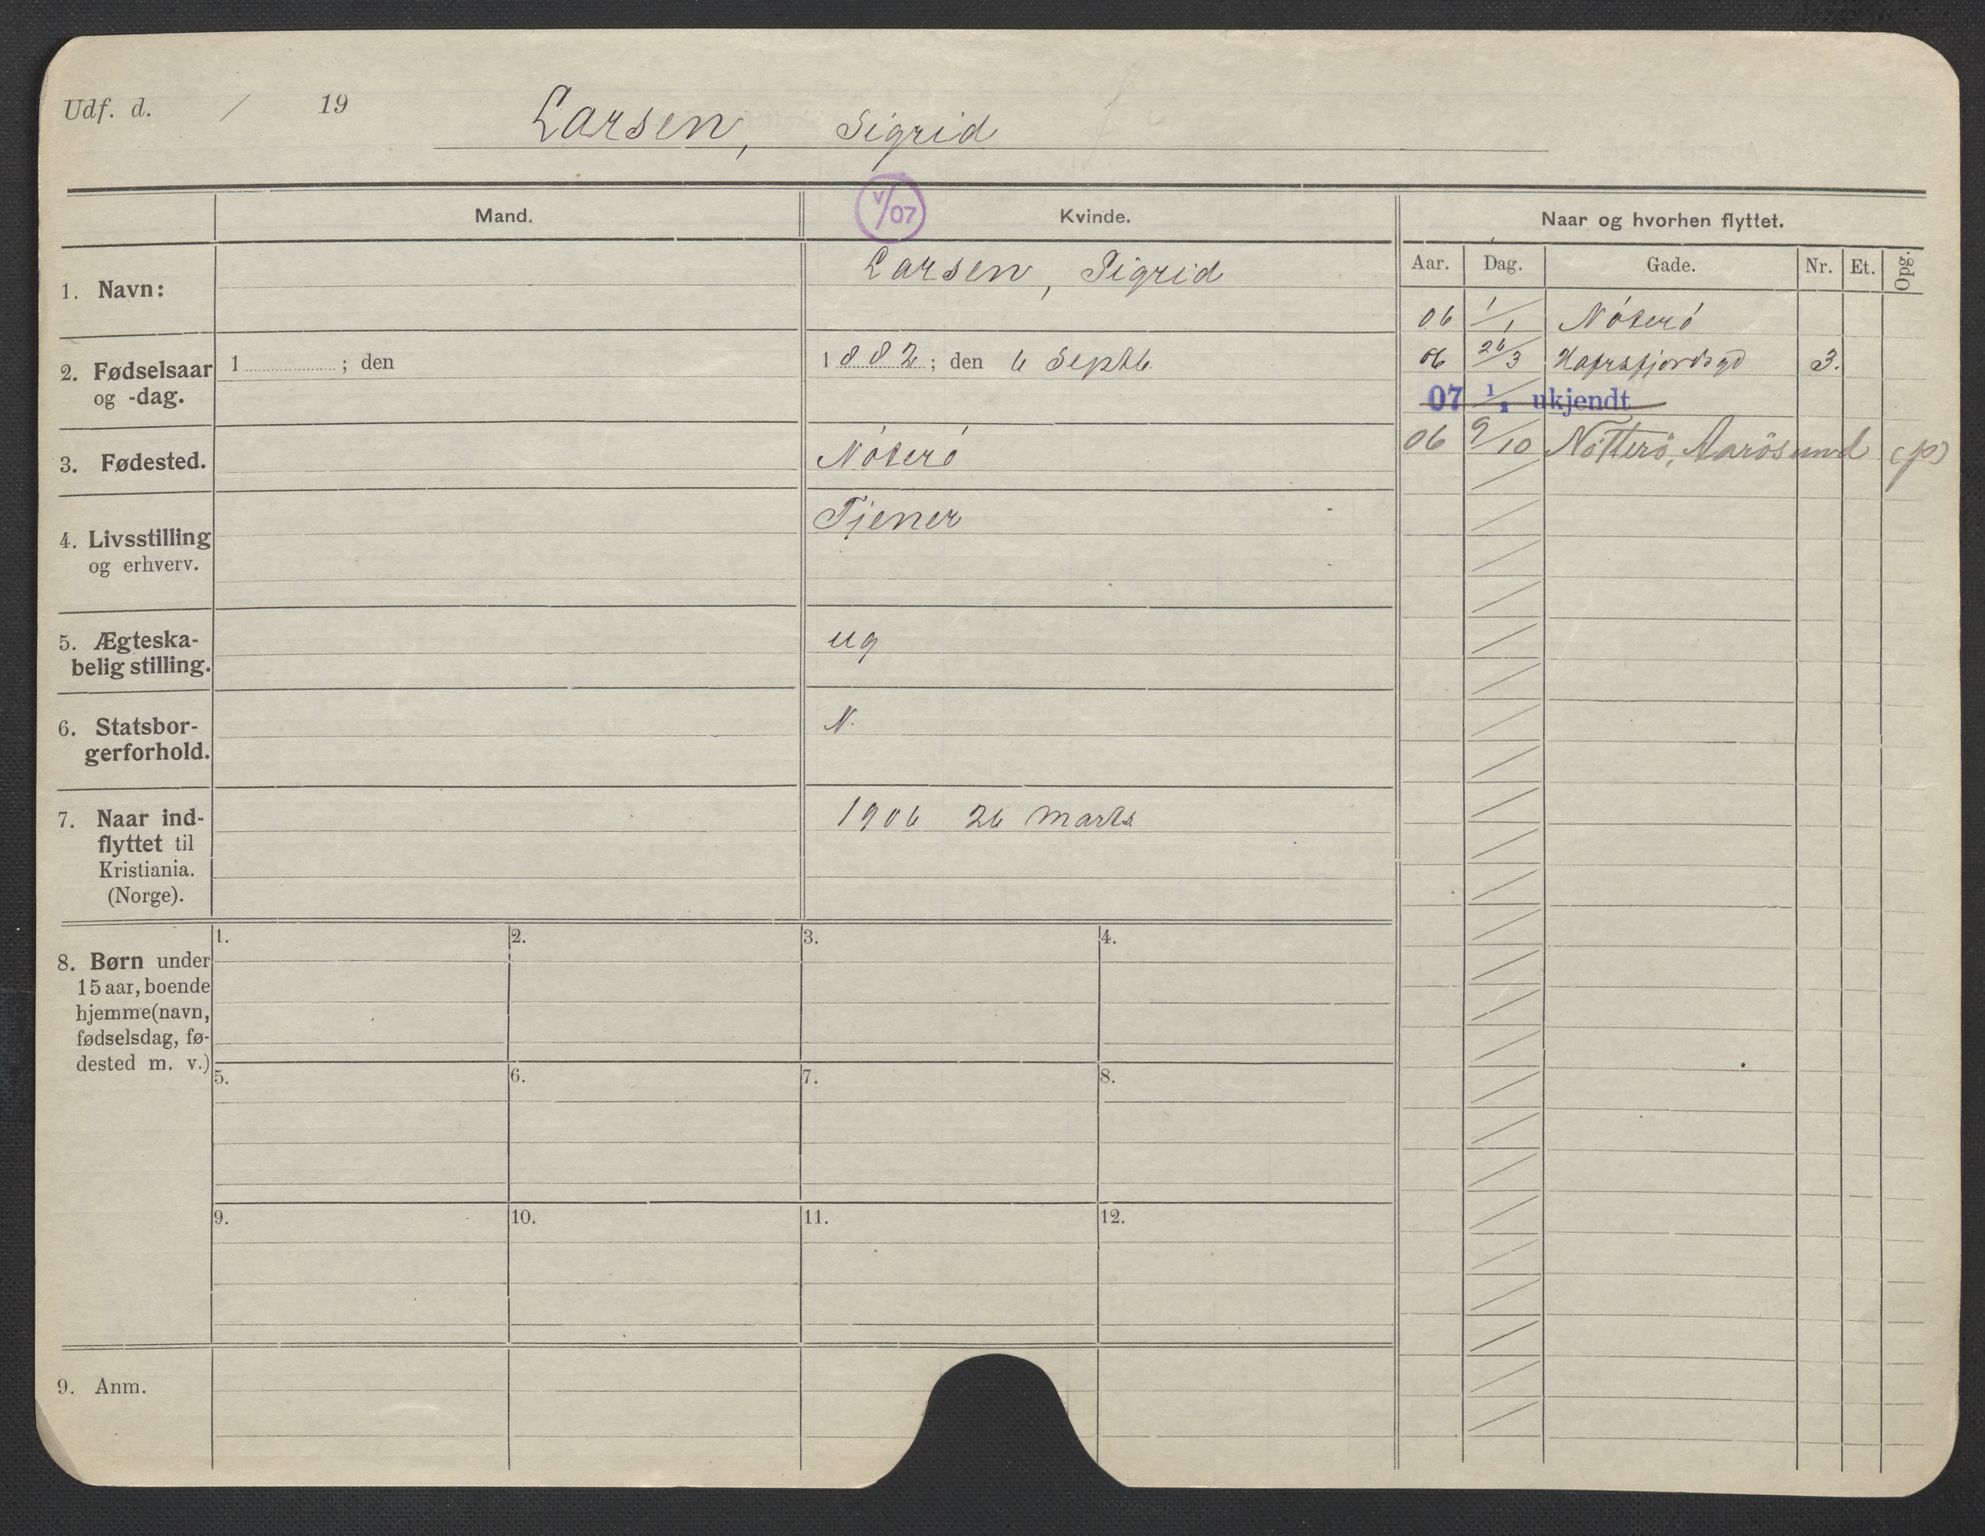 Udf. d. / 19
Larsen, Sigrid
Mand.
V/07
Kvinde.
Naar og hvorhen flyttet.
Aar. Dag. Gade. Nr. Et. Opg.
1. Navn:
Larsen, Sigrid
06 1/1 Nöterö
2. Fødselsaar
og -dag.
1 ; den
1882; den 6 Septb
06 26/3 Hafrsfjordsgd 3.
07 1/2 ukjendt
06 9/10 Nötterö, Aarösund (p)
3. Fødested.
Nöterö
4. Livsstilling
og erhverv.
Tjener
5. Ægteska-
belig stilling.
ug
6. Statsbor-
gerforhold.
N.
7. Naar ind-
flyttet til
Kristiania.
(Norge).
1906 26 Marts
8. Børn under
15 aar, boende
hjemme (navn,
fødselsdag, fø-
dested m. v.)
1. 2. 3. 4.
5. 6. 7. 8.
9. 10. 11. 12.
9. Anm.